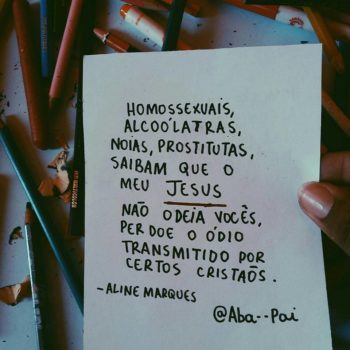 HOMOSSEXUAIS,
ALCOÓLATRAS,
NOIAS, PROSTITUTAS,
SAIBAM QUE O
MEU JESUS
NÃO ODEIA VOCÊS,
PERDOE O ÓDIO
TRANSMITIDO POR
CERTOS CRISTAÕS.
-ALINE MARQUES
@Aba--Pai